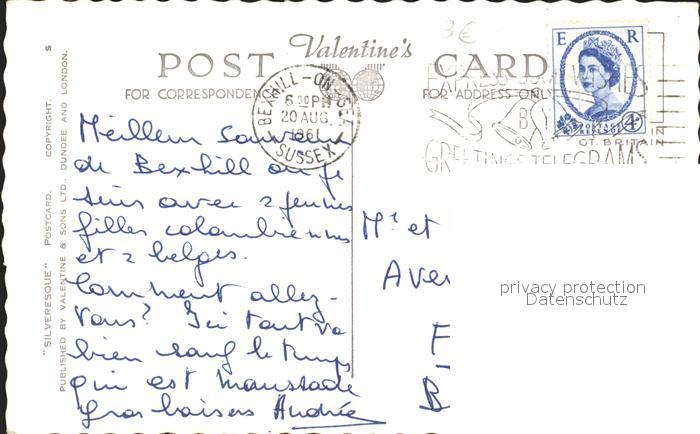 3€
POST Valentine's CARD
FOR CORRESPONDENCE FOR ADDRESS ONLY
"SILVERESQUE" POSTCARD. COPYRIGHT. S
PUBLISHED BY VALENTINE & SONS LTD., DUNDEE AND LONDON.
BEXHILL-ON-SEA
6 30 PM
20 AUG.
1961
SUSSEX
E R
POSTAGE REVENUE
4D
GREETINGS TELEGRAMS
IN
GT. BRITAIN
Meilleur souvenir
de Bexhill où je
suis avec 2 jeunes
filles colombiennes
et 2 belges.
Comment allez-
vous? Ici tout va
bien sauf le temps
qui est maussade
Gros baisers Andrée
Mr et
Aven
F
B
privacy protection
Datenschutz